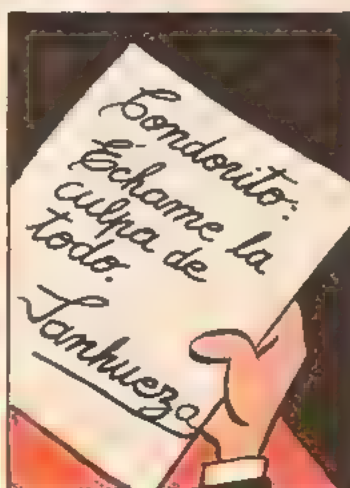 Condorito:
Échame la
culpa de
todo.
Sanhueza